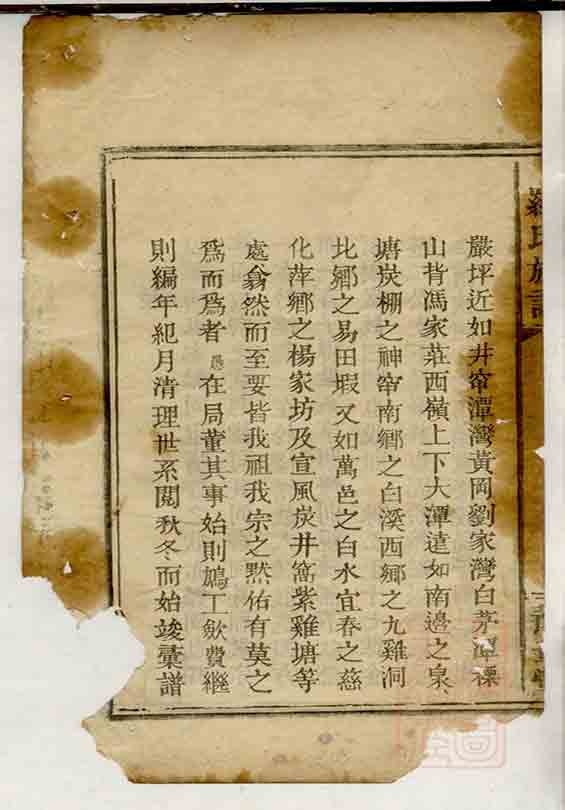 羅氏族譜
嚴坪近如井窜潭灣黃岡劉家灣白茅潭裸
山背馮家莊西嶺上下大潭遠如南邊之泉
塘炭棚之神窜南鄉之白溪西鄉之九雞洞
北鄉之易田塅又如萬邑之白水宜春之慈
化萍鄉之楊家坊及宣風炭井窩紫雞塘等
處翕然而至要皆我祖我宗之默佑有莫之
為而為者愚在局董其事始則鳩工歛費繼
則編年紀月清理世系閱秋冬而始竣彙譜